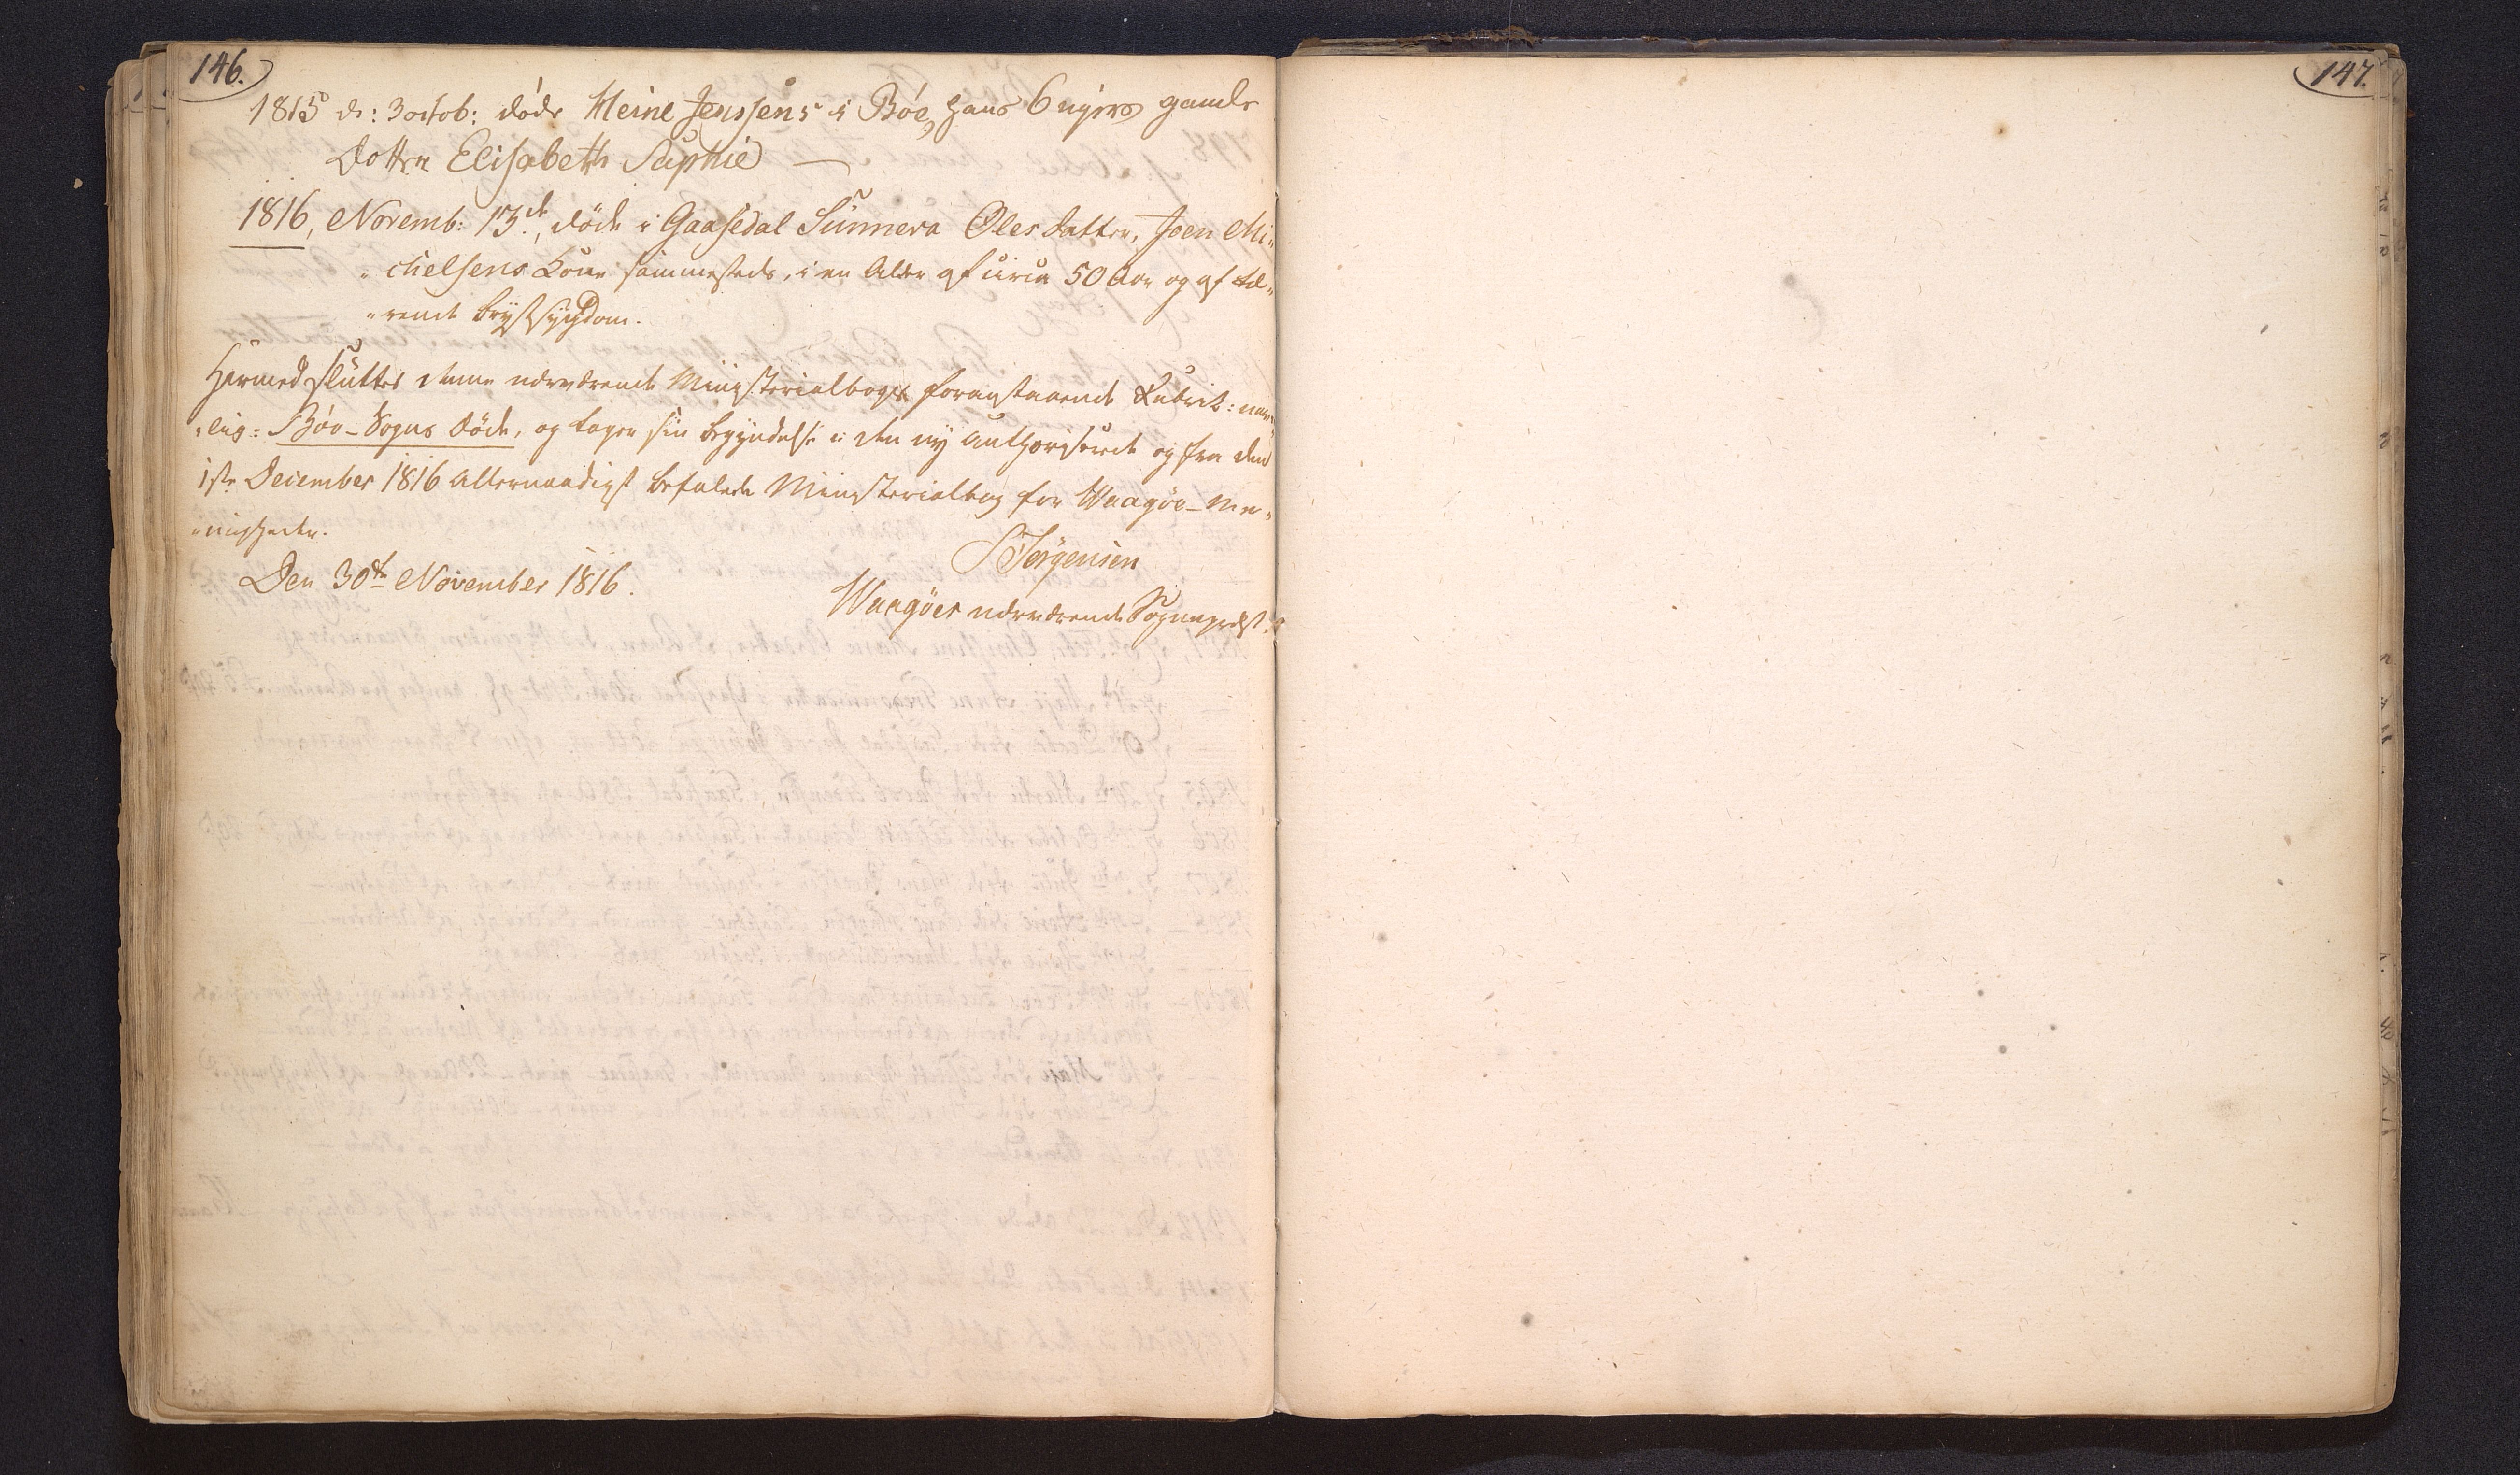 146.
1815 d: 3 octob: døde Heine Jenssens i Bøe, hans 6 ugers gamle
Dotter Elisabeth Suphie —
1816, Novemb: 13de, døde i Gaasedal Sunneva Olesdatter, Joen Mi„
„chelsens Kone sammesteds, i en Alder af circa 50 Aar og af tæ„
„rende Brystsygdom.
Hermed sluttes denne nærværende Ministerialbogs foranstaaende Rubrik: nem„
„lig: Bøe-Sogns døde, og tager sin Begyndelse i den ny authoriserede og fra den
1ste December 1816 allernaadigst befalede Ministerialbog for Waagøe-Me„
„nigheder.
Den 30te November 1816.
Jørgensen
Waagøes nærværende Sognepræst.
147.